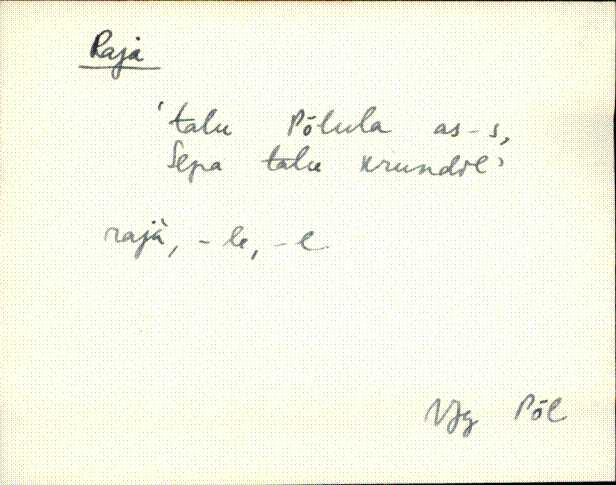 Raja
'talu Põlula as-s,
Sepa talu krundil'
rajà, -le, -l
VJg Põl